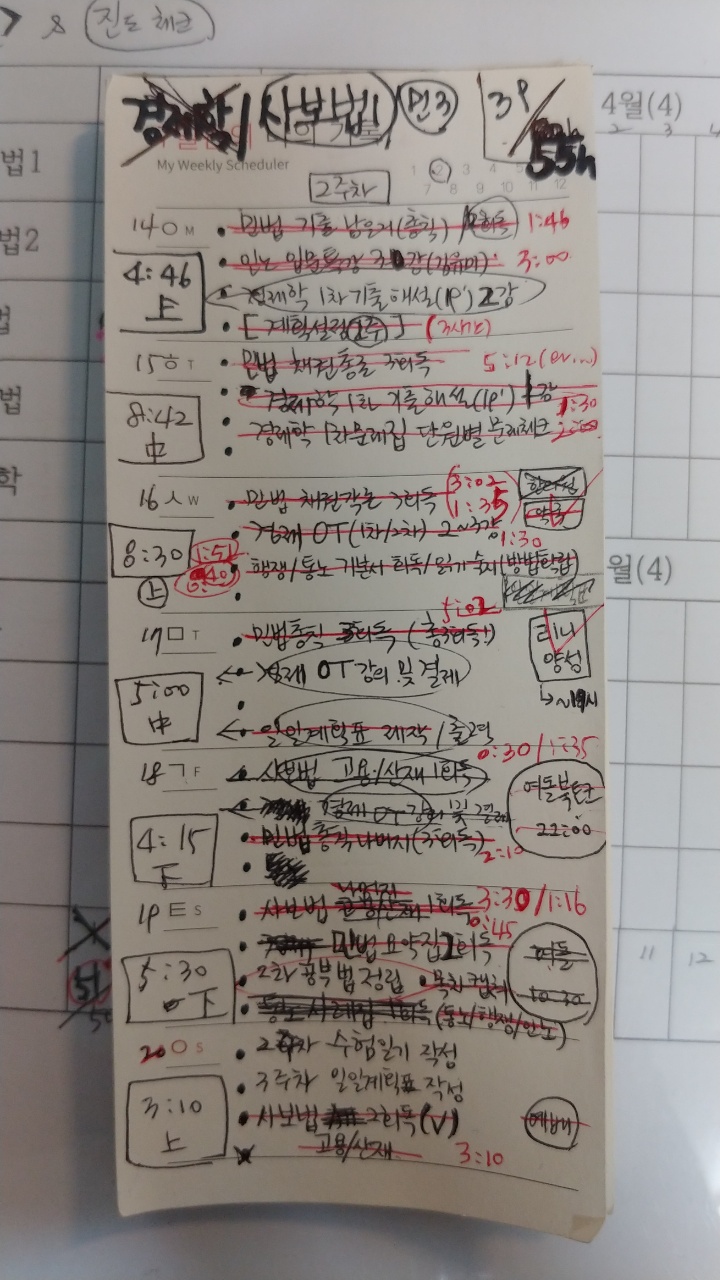 & 진도 체크
4월(4)
경제학 사보법 민3 3P 55h
My Weekly Scheduler
2주차
14 M
민법 기출 남은거(총칙) 1:46
3:00
4:46
上
경제학 1차 기출해설(1P') 2강
[계획설정 2주] (3시간)
15 T
민법 채권총론 3회독 5:12
8:42
中
경제학 1차 기출해설(1P') 1강 1:30
경제학 1차문제집 단원별 문제체크
16 W
민법 채권각론 3회독 3:02
1:35
경제 OT(1차/2차) 2~3강 1:30
8:30
上
1:51
행쟁/통노 기본서 회독/읽기 숙지(방법확립)
월(4)
5:02
17 T
민법총칙 3회독 (총3회독)
← 경제 OT 강의 및 결제
리니
양성
5:00
中
← 일일계획표 제작/출력
0:30/1:35
18 F
사보법 고용/산재 1회독
경제 OT 강의 및 결제
여돌북톡
22:00
4:15
下
민법총칙 나머지(3회독) 2:10
19 S
나머지
사보법 고용/산재 1회독 3:30/1:16
0:45
민법 요약집 1회독
여돌
10:30
5:30
下
2차 공부법 정립 • 목차 캡처
통노 사례집 1회독 (통노/행쟁/인노)
20 S
2주차 수험일기 작성
3주차 일일계획표 작성
3:10
上
사보법 2회독(V)
고용/산재 3:10
예배
법1
법2
법
학
11 12